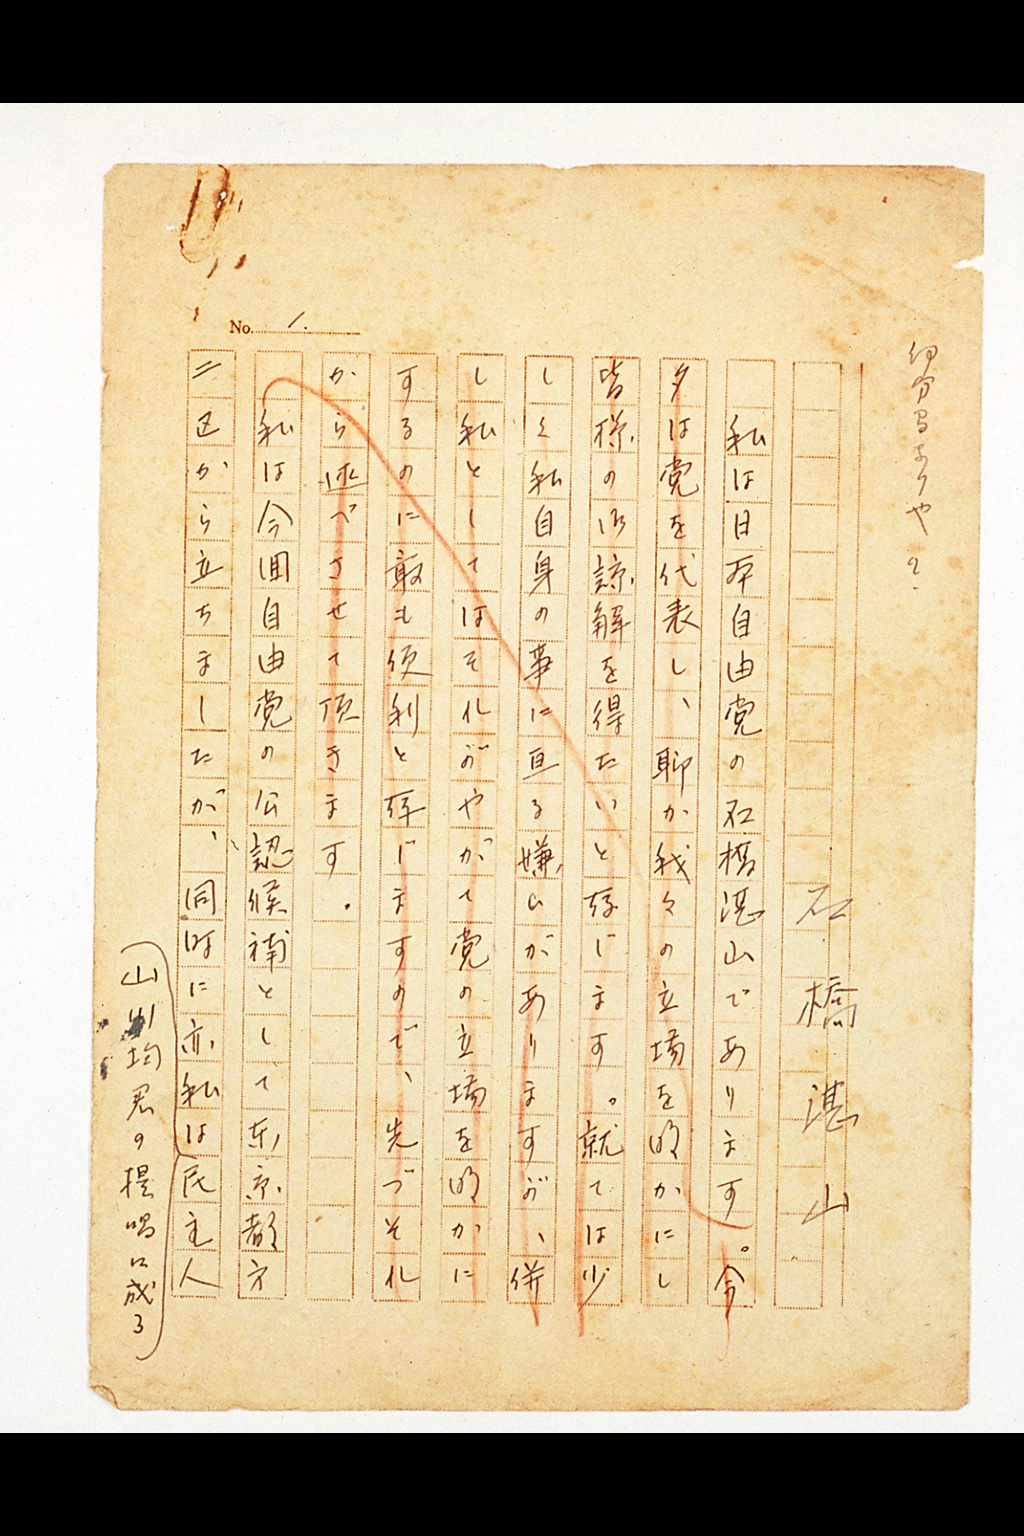 No. 1.
石橋湛山
私は日本自由党の石橋湛山であります。今
夕は党を代表し、聊か我々の立場を明かにし
皆様の御諒解を得たいと存じます。就ては少
しく私自身の事に亘る嫌ひがありますが、併
し私としてはそれがやがて党の立場を明かに
するのに最も便利と存じますので、先づそれ
から述べさせて頂きます。
私は今回自由党の公認候補として東京都方
二区から立ちましたが、同時に亦私は民主人
(山川均君の提唱に成る